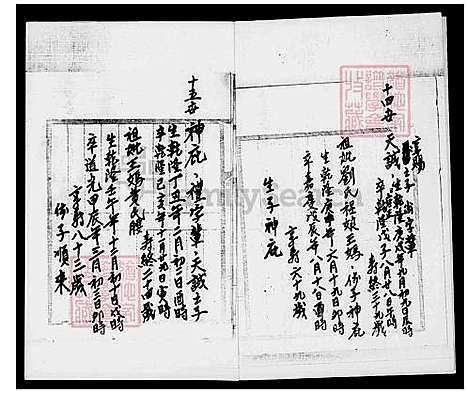 十四世 天誠
生乾隆庚辰年九月初九日辰時
卒乾隆戊子八月廿八日
壽終三十九歲
祖妣劉氏桂娘王媽 係子神庇
生乾隆庚申年六月十九日卯時
卒嘉慶戊辰年八月十日酉時
享壽六十九歲
生子神庇
十五世 神庇 禮字輩 天誠之子
生乾隆丁丑年二月初二日酉時
卒乾隆己亥年十月廿九日寅時
壽終二十四歲
祖妣王媽黃氏
生乾隆壬午年十二月初十日戌時
卒道光甲辰年三月初三日卯時
享壽八十三歲
係子順來